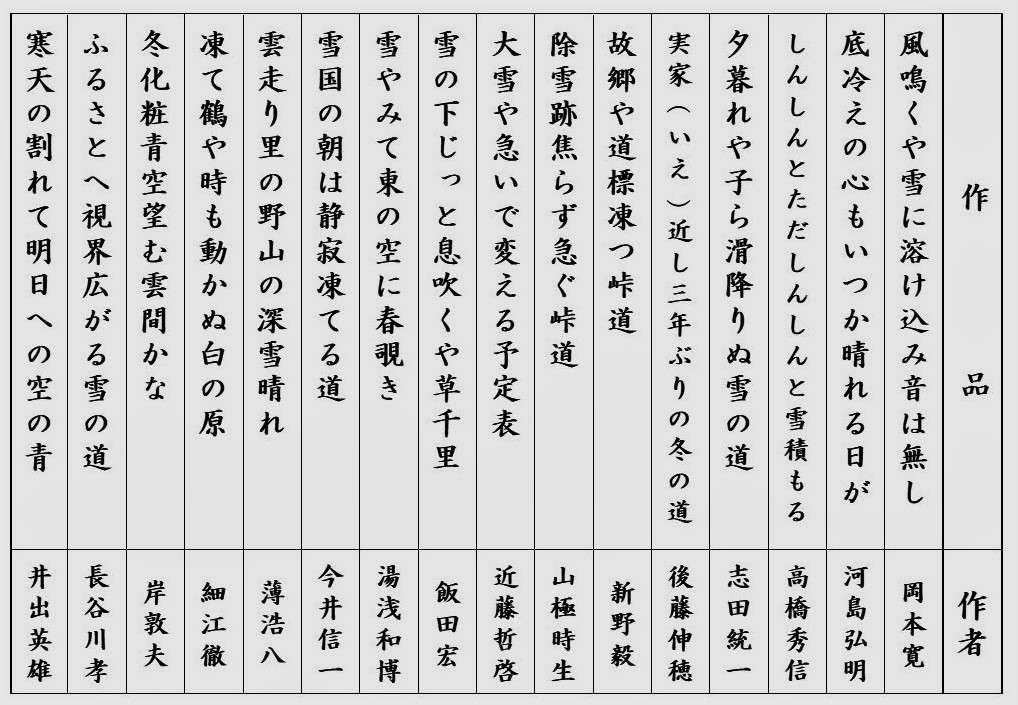 作品
作者
風鳴くや雪に溶け込み音は無し
岡本寛
底冷えの心もいつか晴れる日が
河島弘明
しんしんとただしんしんと雪積もる
高橋秀信
夕暮れや子ら滑降りぬ雪の道
志田統一
実家(いえ)近し三年ぶりの冬の道
後藤伸穂
故郷や道標凍つ峠道
新野毅
除雪跡焦らず急ぐ峠道
山極時生
大雪や急いで変える予定表
近藤哲啓
雪の下じっと息吹くや草千里
飯田宏
雪やみて東の空に春覗き
湯浅和博
雪国の朝は静寂凍てる道
今井信一
雲走り里の野山の深雪晴れ
薄浩八
凍て鶴や時も動かぬ白の原
細江徹
冬化粧青空望む雲間かな
岸敦夫
ふるさとへ視界広がる雪の道
長谷川孝
寒天の割れて明日への空の青
井出英雄